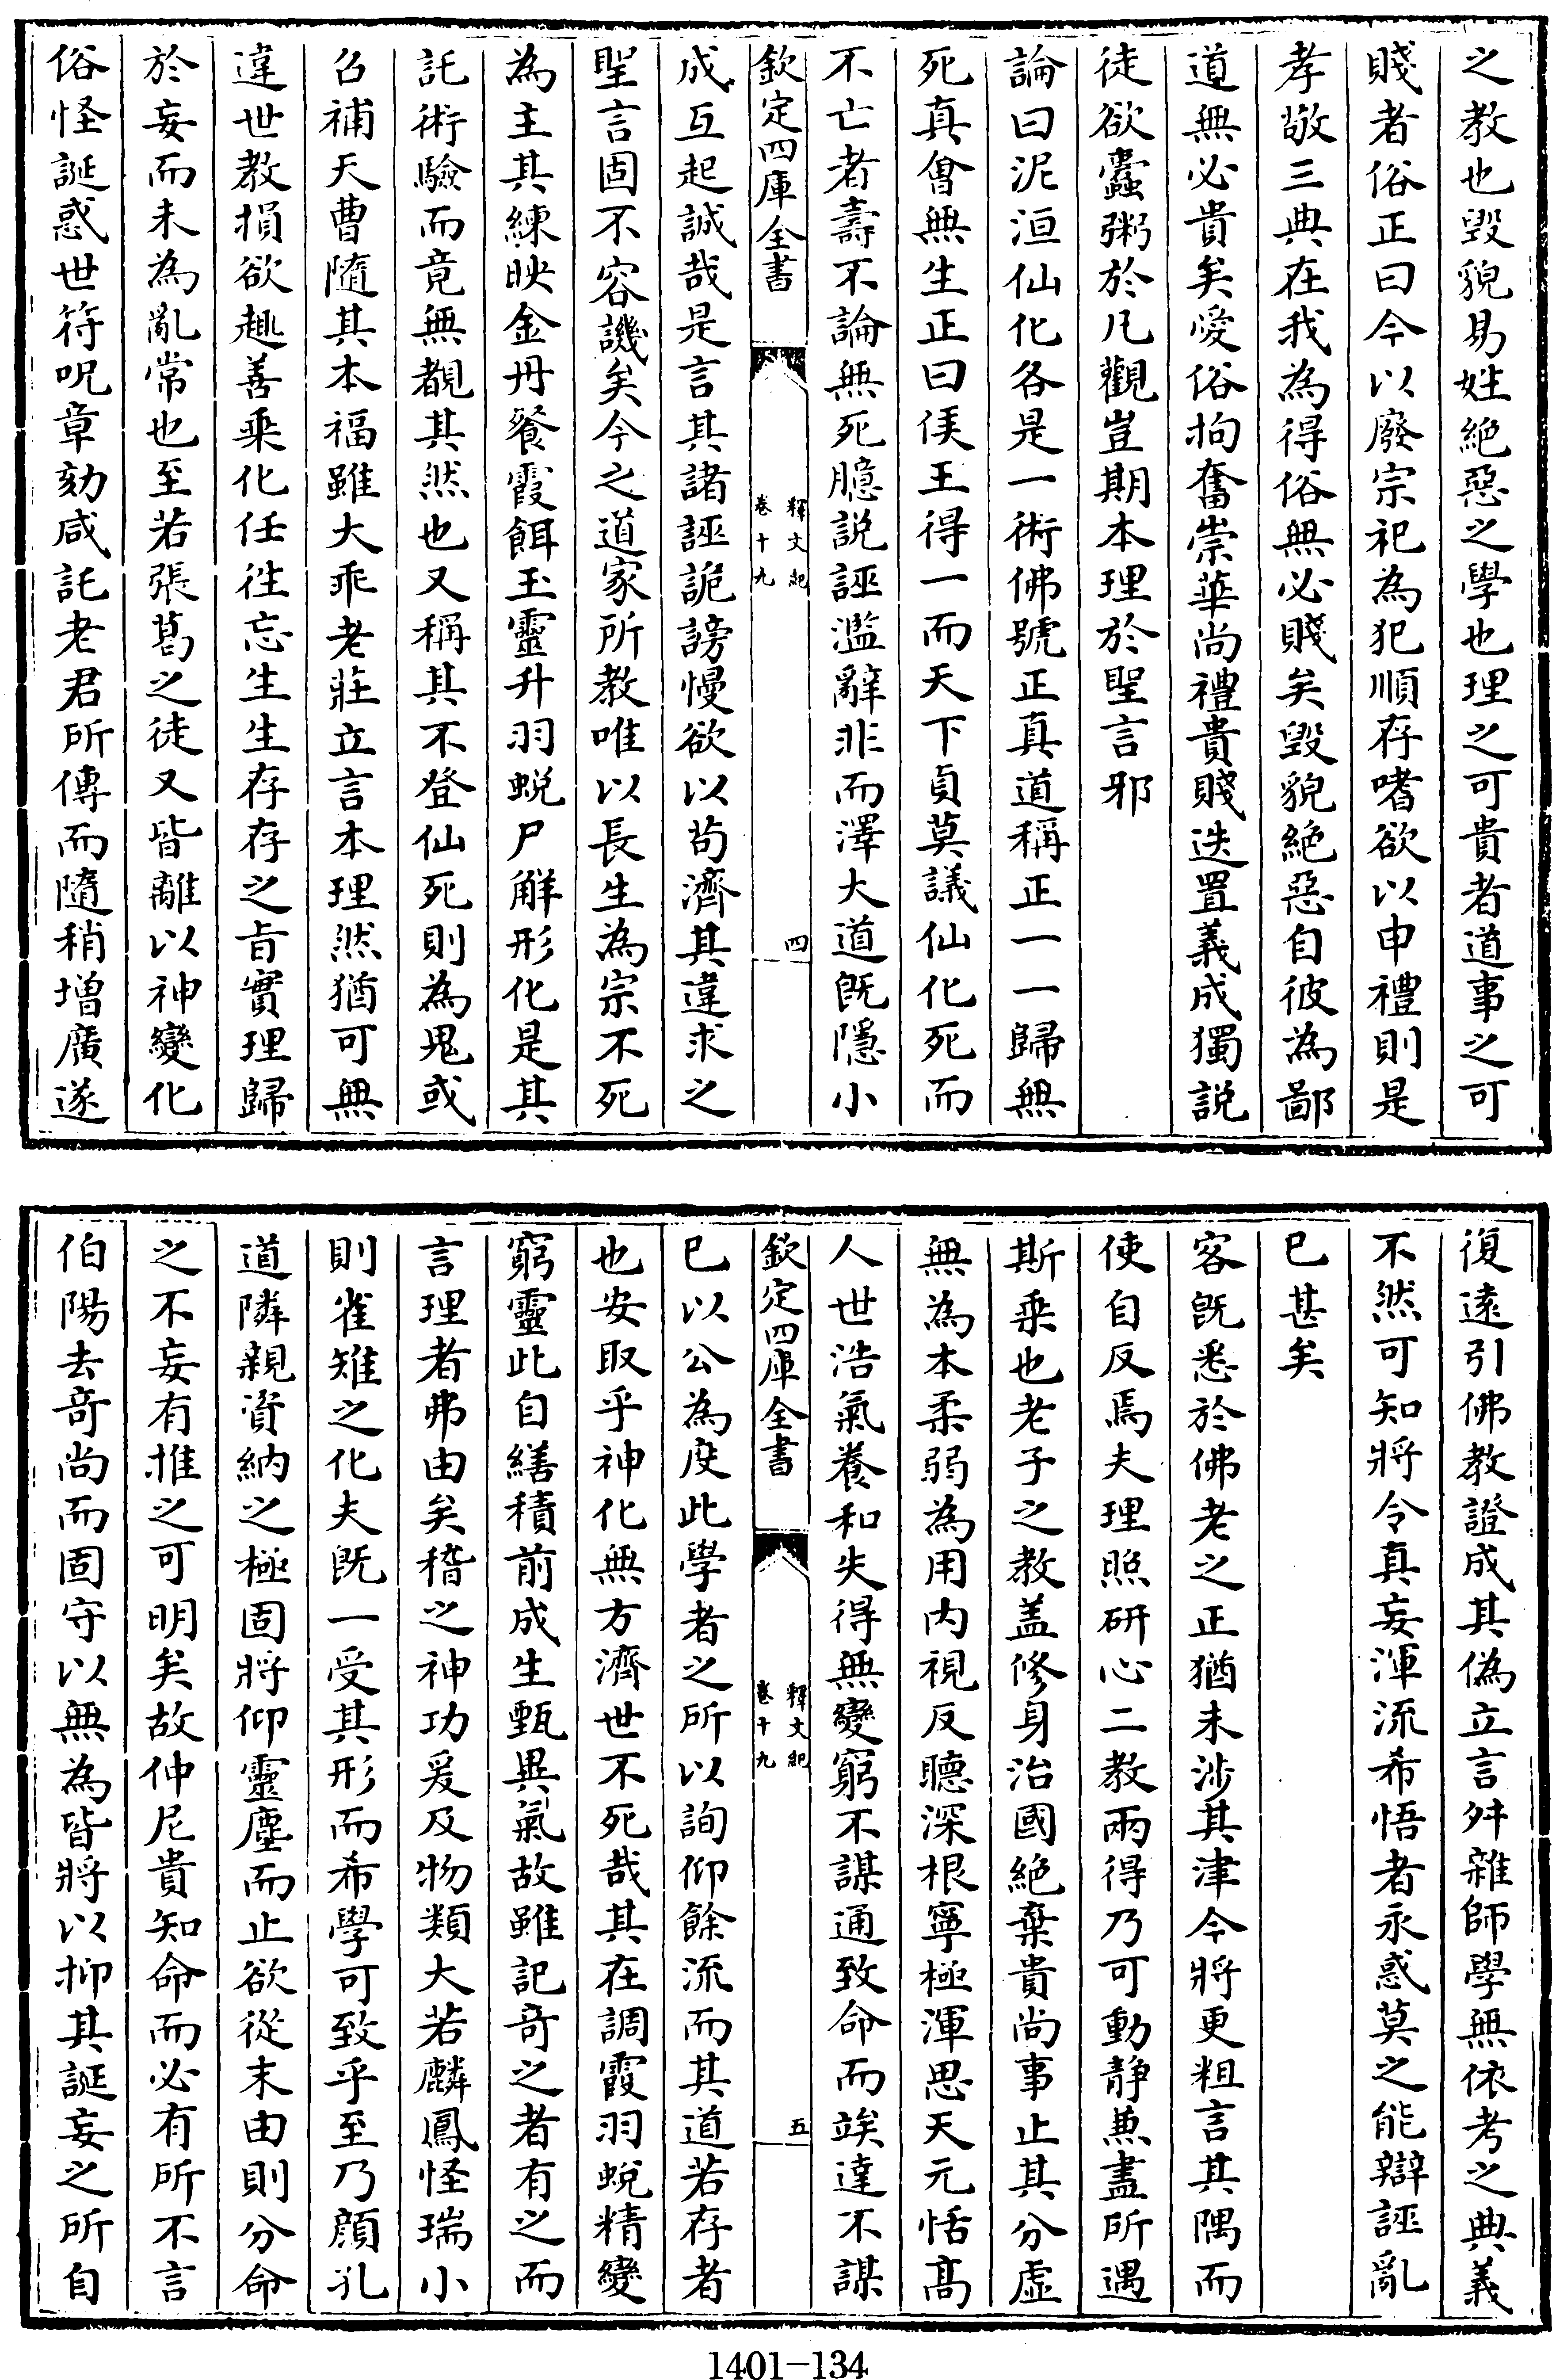 之教也毀貌易姓絕惡之學也理之可貴者道事之可
賤者俗正曰今以廢宗祀為犯順存嗜欲以申禮則是
孝敬三典在我為得俗無必賤矣毀貌絕惡自彼為鄙
道無必貴矣愛俗拘奮崇華尚禮貴賤迭置義成獨説
徒欲蠹粥於凡觀豈期本理於聖言邪
論曰泥洹仙化各是一術佛號正真道稱正一一歸無
死真會無生正曰侯王得一而天下貞莫議仙化死而
不亡者壽不論無死臆説誣濫辭非而澤大道既隱小
欽定四庫全書
釋文紀
卷十九
四
成互起誠哉是言其諸誣詭謗慢欲以苟濟其違求之
聖言固不容譏矣今之道家所教唯以長生為宗不死
為主其練映金丹餐霞餌玉靈升羽蛻尸解形化是其
託術驗而竟無覩其然也又稱其不登仙死則為鬼或
召補天曹隨其本福雖大乖老莊立言本理然猶可無
違世教損欲趣善乘化任往忘生生存存之旨實理歸
於妄而未為亂常也至若張葛之徒又皆離以神變化
俗怪誕惑世符呪章劾咸託老君所傳而隨稍增廣遂
復遠引佛教證成其偽立言舛雜師學無依考之典義
不然可知將令真妄渾流希悟者永惑莫之能辯誣亂
已甚矣
客既悉於佛老之正猶未涉其津今將更粗言其隅而
使自反焉夫理照研心二教兩得乃可動静兼盡所遇
斯乘也老子之教盖修身治國絕棄貴尚事止其分虛
無為本柔弱為用内視反聽深根寧極渾思天元恬髙
人世浩氣養和失得無變窮不謀通致命而竢達不謀
欽定四庫全書
釋文紀
卷十九
五
已以公為度此學者之所以詢仰餘流而其道若存者
也安取乎神化無方濟世不死哉其在調霞羽蛻精變
窮靈此自繕積前成生甄異氣故雖記竒之者有之而
言理者弗由矣稽之神功爰及物類大若麟鳳怪瑞小
則雀雉之化夫既一受其形而希學可致乎至乃顔孔
道隣親資納之極固將仰靈塵而止欲從末由則分命
之不妄有推之可明矣故仲尼貴知命而必有所不言
伯陽去竒尚而固守以無為皆將以抑其誕妄之所自
1401-134